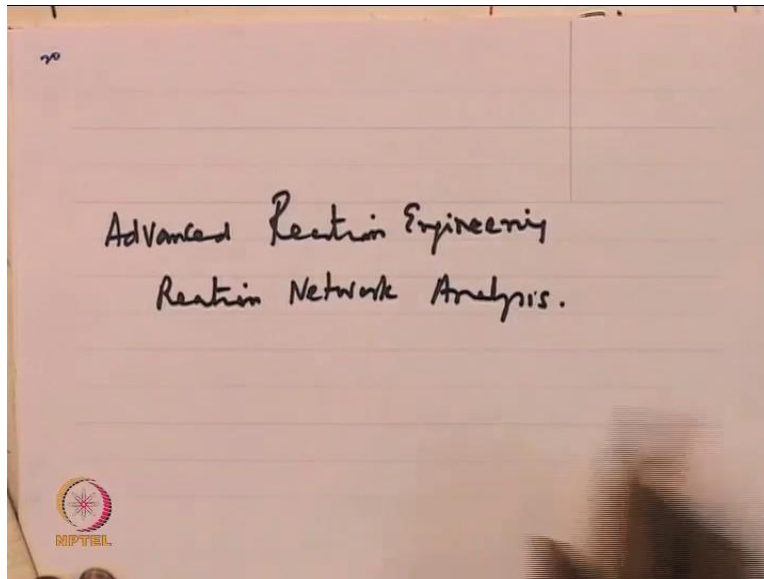 20
Advanced Reaction Engineering
Reaction Network Analysis.
NPTEL